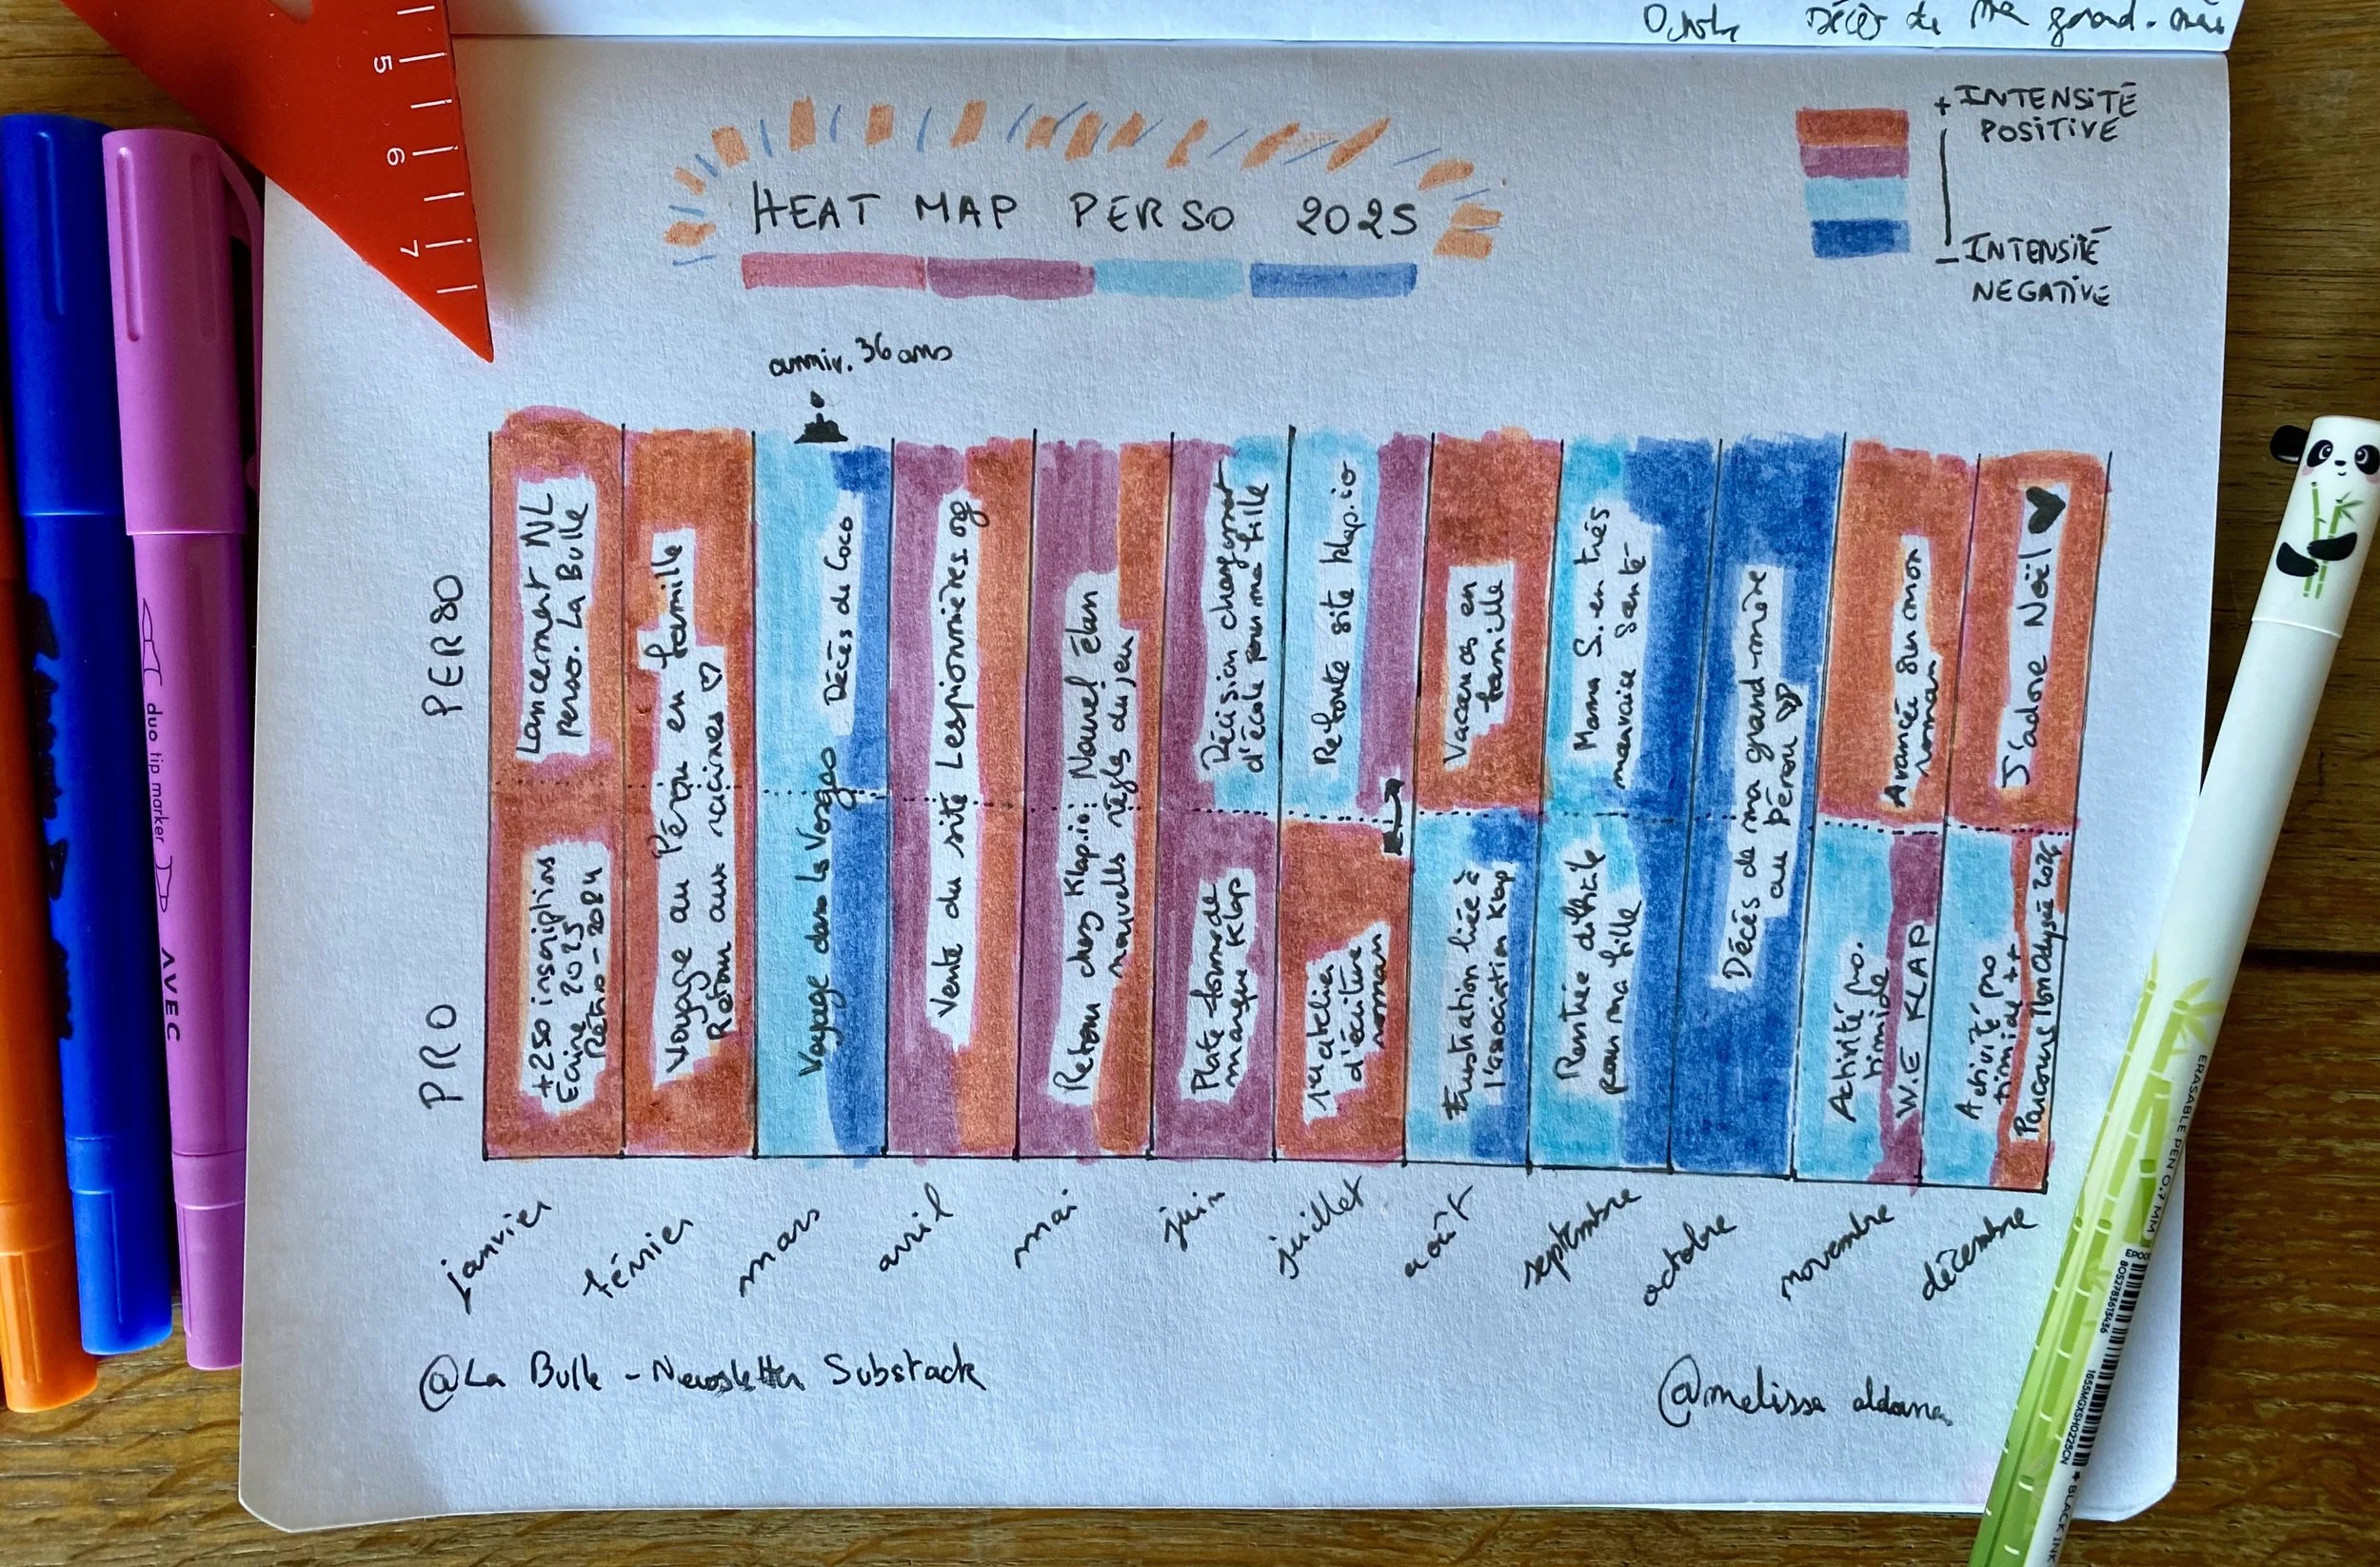 Décès de ma grand-mère
5
6
7
+ INTENSITÉ
POSITIVE
- INTENSITÉ
NEGATIVE
HEAT MAP PERSO 2025
anniv. 36 ans
PERSO
PRO
Lancement NL
perso. La Bulle
+250 inscriptions
Ecrire 2025
Rétro-2024
Voyage au Pérou en famille
Retour aux racines ♡
Décès de Coco
Voyage dans les Vosges
Vente du site Lespionnières.org
Retour chez Klap.io: Nouvel élan
nouvelles règles du jeu
Décision changement
d'école pour ma fille
Plateforme de
marque Klap
Refonte site klap.io
1er atelier
d'écriture
roman
Vacances en
famille
Frustration liée à
l'association Klap
Mama S. en très
mauvaise santé
Rentrée difficile
pour ma fille
Décés de ma grand-mère
au Pérou ♡
Avancée sur mon
roman
Activité pro.
timide
W.E KLAP
J'adore Noël ♥
Activité pro
timide ++
Parcours Mon Odyssée 2026
janvier
février
mars
avril
mai
juin
juillet
août
septembre
octobre
novembre
décembre
@La Bulle - Newsletter Substack
@melissa aldana
duo tip marker
AVEC
ERASABLE PEN 0.7 MM